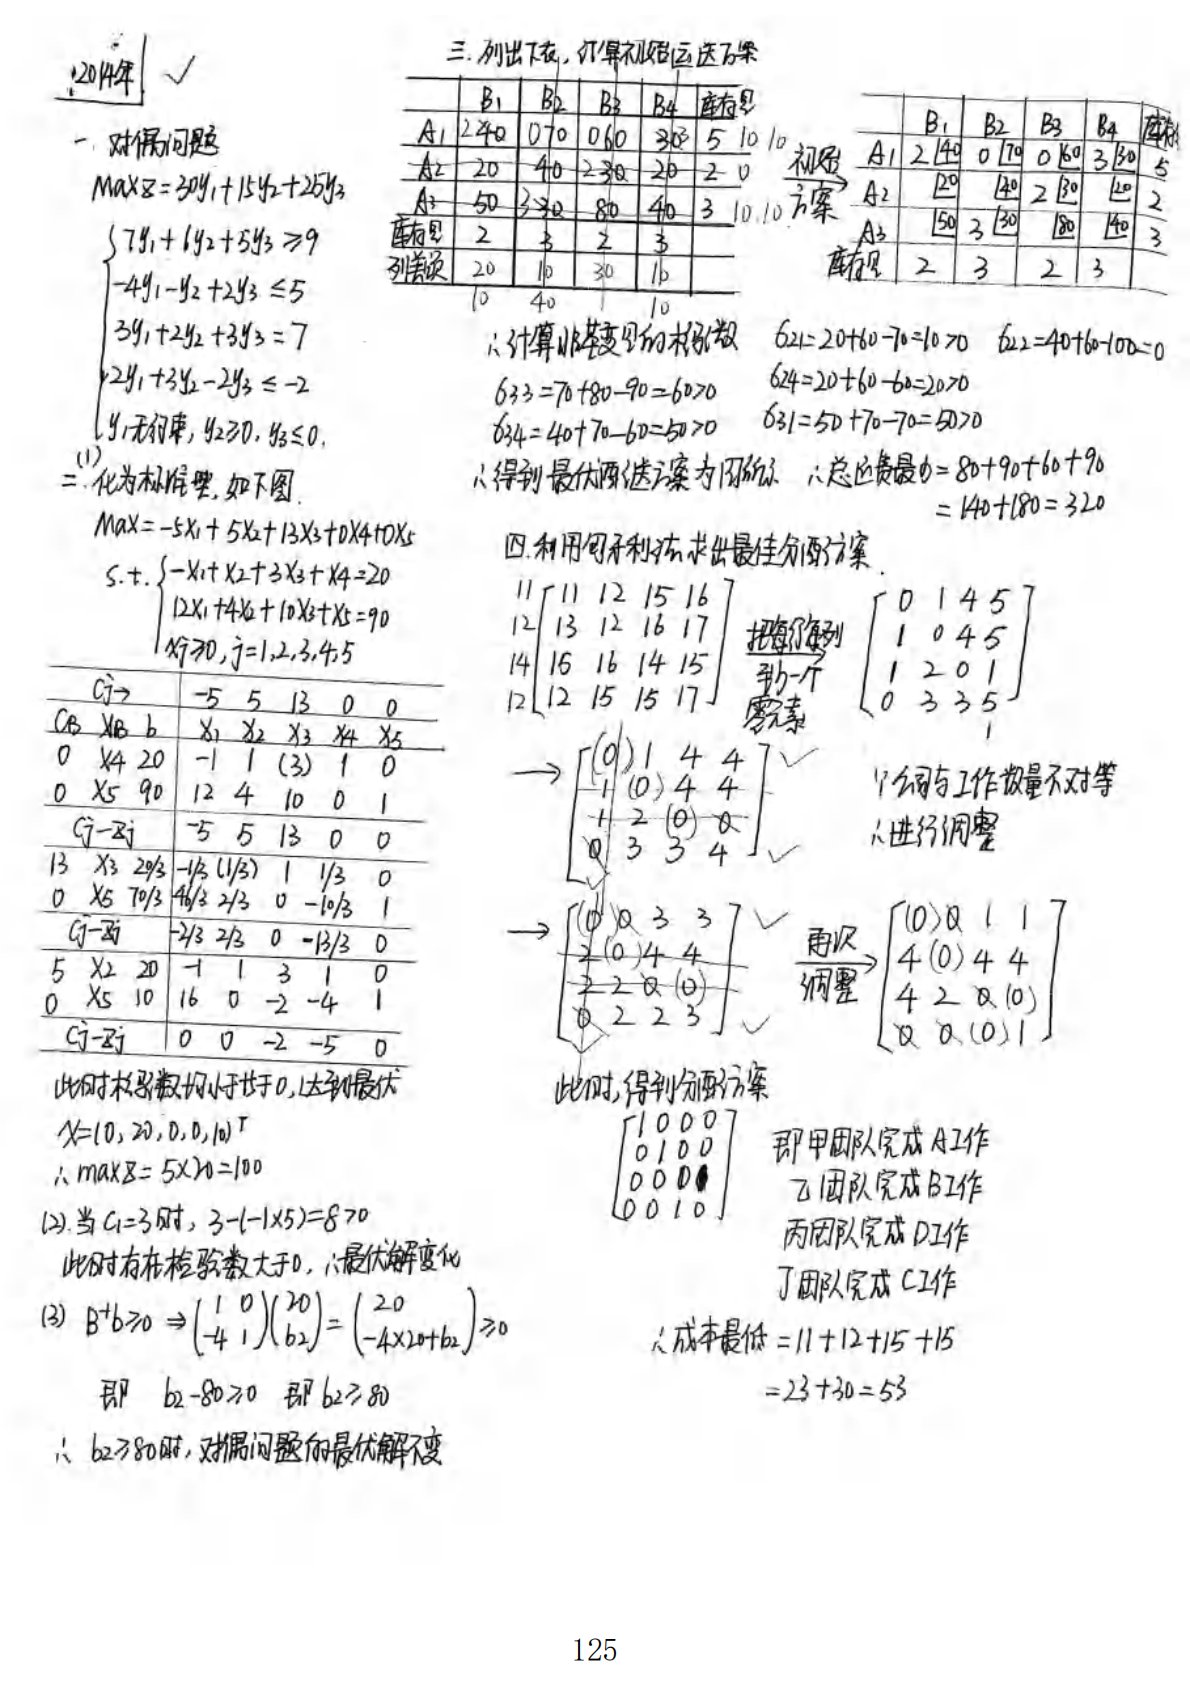 2014年 ✓
一、对偶问题
Max z=30y1+15y2+25y3
7y1+6y2+5y3≥9
-4y1-y2+2y3≤5
3y1+2y2+3y3=7
2y1+3y2-2y3≤-2
y1无约束, y2≥0, y3≤0.
二、(1)化为标准型,如下图
Max=-5x1+5x2+13x3+0x4+0x5
s.t. -x1+x2+3x3+x4=20
12x1+4x2+10x3+x5=90
xj≥0, j=1,2,3,4,5
Cj→ -5 5 13 0 0
CB XB b x1 x2 x3 x4 x5
0 x4 20 -1 1 (3) 1 0
0 x5 90 12 4 10 0 1
Cj-Zj -5 5 13 0 0
13 x3 20/3 -1/3 (1/3) 1 1/3 0
0 x5 70/3 46/3 2/3 0 -10/3 1
Cj-Zj -2/3 2/3 0 -13/3 0
5 x2 20 -1 1 3 1 0
0 x5 10 16 0 -2 -4 1
Cj-Zj 0 0 -2 -5 0
此时检验数均小于等于0,达到最优
X=(0,20,0,0,10)T
∴max z=5×20=100
(2).当C1=3时, 3-(-1×5)=8>0
此时存在检验数大于0, ∴最优解变化
(3) B-1b≥0 ⇒ (1 0 -4 1)(20 b2)=(20 -4×20+b2)≥0
即 b2-80≥0 即b2≥80
∴ b2≥80时,对偶问题的最优解不变
三、列出下表,计算初始运送方案
B1 B2 B3 B4 库存量
A1 2 40 0 70 0 60 3 30 5 10 10
A2 20 40 2 30 20 2 0
A3 50 3 30 80 40 3 10.10
库存量 2 3 2 3
列差额 20 10 30 10
10 40 10
初始方案
B1 B2 B3 B4 库存
A1 2 40 0 70 0 60 3 30 5
A2 20 40 2 30 20 2
A3 50 3 30 80 40 3
库存量 2 3 2 3
∴计算非基变量的检验数 б21=20+60-70=10>0 б22=40+60-100=0
б33=70+80-90=60>0 б24=20+60-60=20>0
б34=40+70-60=50>0 б31=50+70-70=50>0
∴得到最优运送方案为图所示 ∴总运费最小=80+90+60+90
=140+180=320
四.利用匈牙利法求出最佳分配方案.
11 11 12 15 16
12 13 12 16 17
14 15 16 14 15
12 12 15 15 17
把每行每列到少一个零元素
0 1 4 5
1 0 4 5
1 2 0 1
0 3 3 5
1
→ (0) 1 4 4 ✓
1 (0) 4 4
1 2 (0) 0
0 3 3 4 ✓
∵公司与工作数量不对等
∴进行调整
→ (0) 0 3 3 ✓
2 (0) 4 4
2 2 0 (0)
0 2 2 3 ✓
再次调整
(0) 0 1 1
4 (0) 4 4
4 2 0 (0)
0 0 (0) 1
此时,得到分配方案
1 0 0 0
0 1 0 0
0 0 0 1
0 0 1 0
即甲团队完成A工作
乙团队完成B工作
丙团队完成D工作
丁团队完成C工作
∴成本最低=11+12+15+15
=23+30=53
125